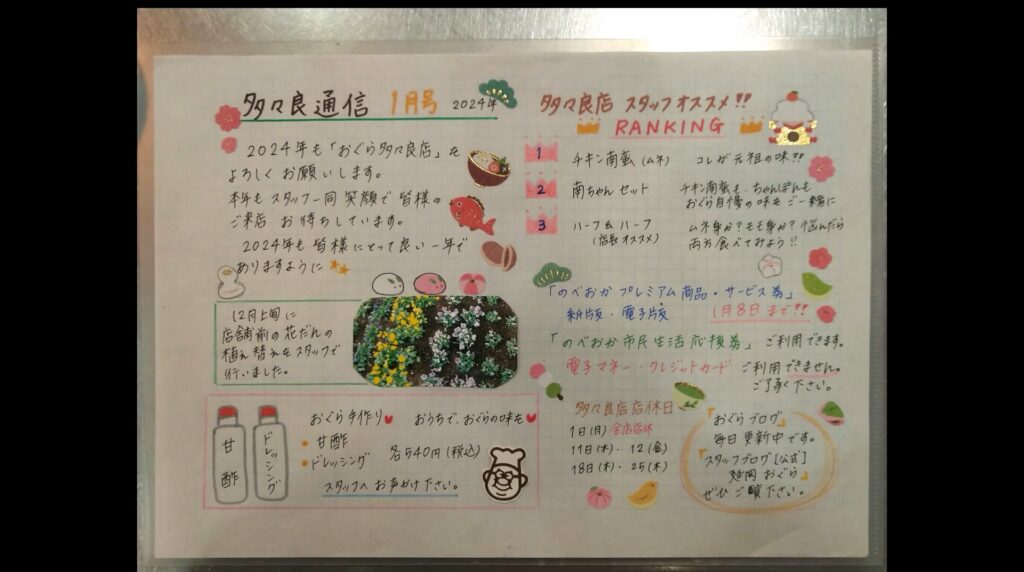 多々良通信 1月号 2024年
2024年も「おぐら多々良店」を
よろしく お願いします。
本年も スタッフ一同 笑顔で 皆様の
ご来店 お待ちしています。
2024年も 皆様にとって良い一年で
ありますように
12月上旬に
店舗前の花だんの
植え替えをスタッフで
行いました。
甘酢
ドレッシング
おぐら手作り おうちで、おぐらの味を
・甘酢
・ドレッシング 各540円(税込)
スタッフへ お声かけ下さい。
多々良店 スタッフオススメ!!
RANKING
1 チキン南蛮(ムネ) コレが元祖の味!!
2 南ちゃんセット チキン南蛮も、ちゃんぽんも
おぐら自慢の味をご一緒に
3 ハーフ&ハーフ ムネ身か?もも身か?悩んだら
(店長オススメ) 両方食べてみよう!!
「のべおかプレミアム商品・サービス券」
紙版・電子版 1月8日まで!!
「のべおか市民生活応援券」ご利用できます。
電子マネー・クレジットカード ご利用できません。
ご了承下さい。
多々良店店休日
1日(月)全店店休
11日(木)・12(金)
18日(木)・25(木)
『おぐらブログ』
毎日更新中です。
『スタッフブログ[公式]
延岡おぐら』
ぜひご覧下さい。